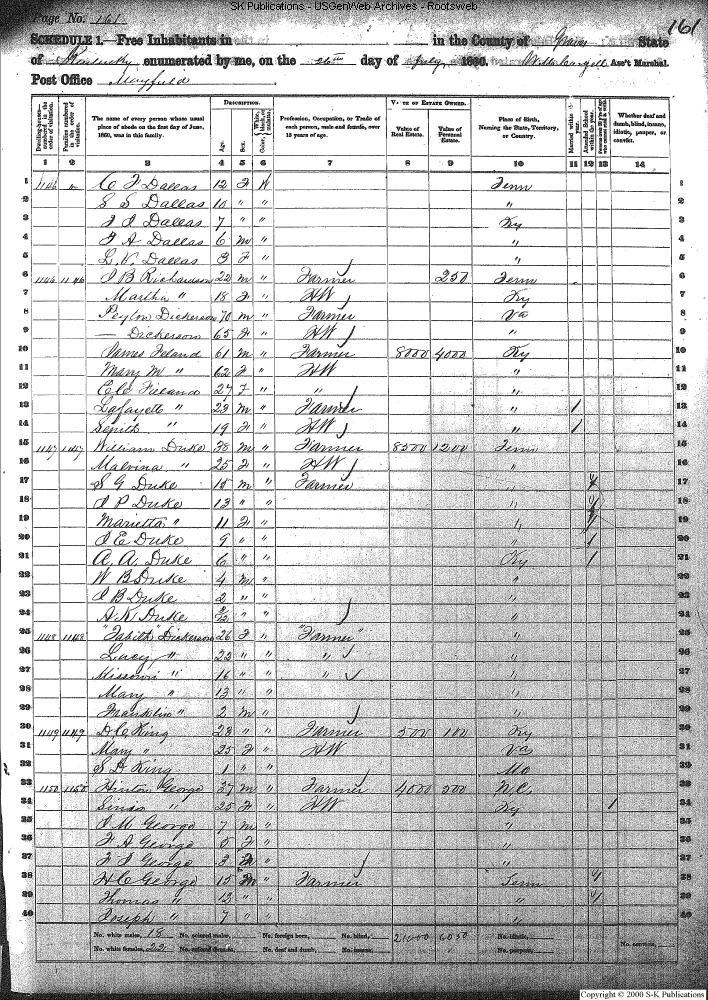 SK Publications - USGenWeb Archives - Rootsweb
Page No. 161
161
SCHEDULE 1.—Free Inhabitants in in the County of Graves State
of Kentucky enumerated by me, on the 26th day of July, 1860. Ass't Marshal.
Post Office Mayfield
Dwelling-houses—numbered in the order of visitation.
Families numbered in the order of visitation.
The name of every person whose usual place of abode on the first day of June, 1860, was in this family.
DESCRIPTION.
Age.
Sex.
Color, White, black, or mulatto.
Profession, Occupation, or Trade of each person, male and female, over 15 years of age.
VALUE OF ESTATE OWNED.
Value of Real Estate.
Value of Personal Estate.
Place of Birth, Naming the State, Territory, or Country.
Married within the year.
Attended School within the year.
Whether deaf and dumb, blind, insane, idiotic, pauper, or convict.
1 2 3 4 5 6 7 8 9 10 11 12 13 14
1 1145 C F Dallas 12 F W Tenn 1
2 S S Dallas 10 " " " 2
3 Dallas 7 " " Ky 3
4 F A Dallas 6 m " " 4
5 L. V. Dallas 3 F " " 5
6 1146 1146 J B Richardson 22 m " Farmer 250 Tenn 6
7 Martha " 18 F " HW Ky 7
8 Peyton Dickerson 70 m " Farmer Va 8
9 — Dickerson 65 F " HW " 9
10 James Feland 61 m " Farmer 8000 4000 Ky 10
11 Mary M " 62 F " HW " 11
12 Feland 27 F " " " 12
13 Lafayette " 23 m " Farmer " 1 13
14 " 19 F " HW " 1 14
15 1147 1147 William Duke 38 m " Farmer 8500 1200 Tenn 15
16 Malvina " 25 F " HW " 16
17 S G Duke 15 m " Farmer " 17
18 J P Duke 13 " " " 18
19 Marietta " 11 F " " 19
20 J E Duke 9 " " " 1 20
21 A. A. Duke 6 " " Ky 1 21
22 W B Duke 4 m " " 22
23 J B Duke 2 " " " 23
24 A K Duke " " " 24
25 1148 1148 "Tabith" Dickerson 26 F " "Farmer" " 25
26 Lucy " 22 " " " " 26
27 Missouri " 16 " " " " 27
28 Mary " 13 " " " 28
29 Franklin " 2 m " " 29
30 1149 1149 D C King 28 " " Farmer 500 100 Ky 30
31 Mary " 25 F " HW Va 31
32 King 1 " " Mo 32
33 1150 1150 Hinton George 37 m " Farmer 4000 500 N.C. 33
34 " 25 F " HW Ky 1 34
35 J M George 7 m " " 35
36 F A George 5 F " " 36
37 F J George 3 m " " 37
38 H C George 15 m " Farmer Tenn 38
39 Thomas " 13 " " " 39
40 Joseph " 7 " " " 40
No. white males, 18 No. colored males, No. foreign born, No. blind, 21000 6050 No. idiotic,
No. white females, 22 No. colored females, No. deaf and dumb, No. insane, No. paupers, No. convicts,
Copyright © 2000 S-K Publications